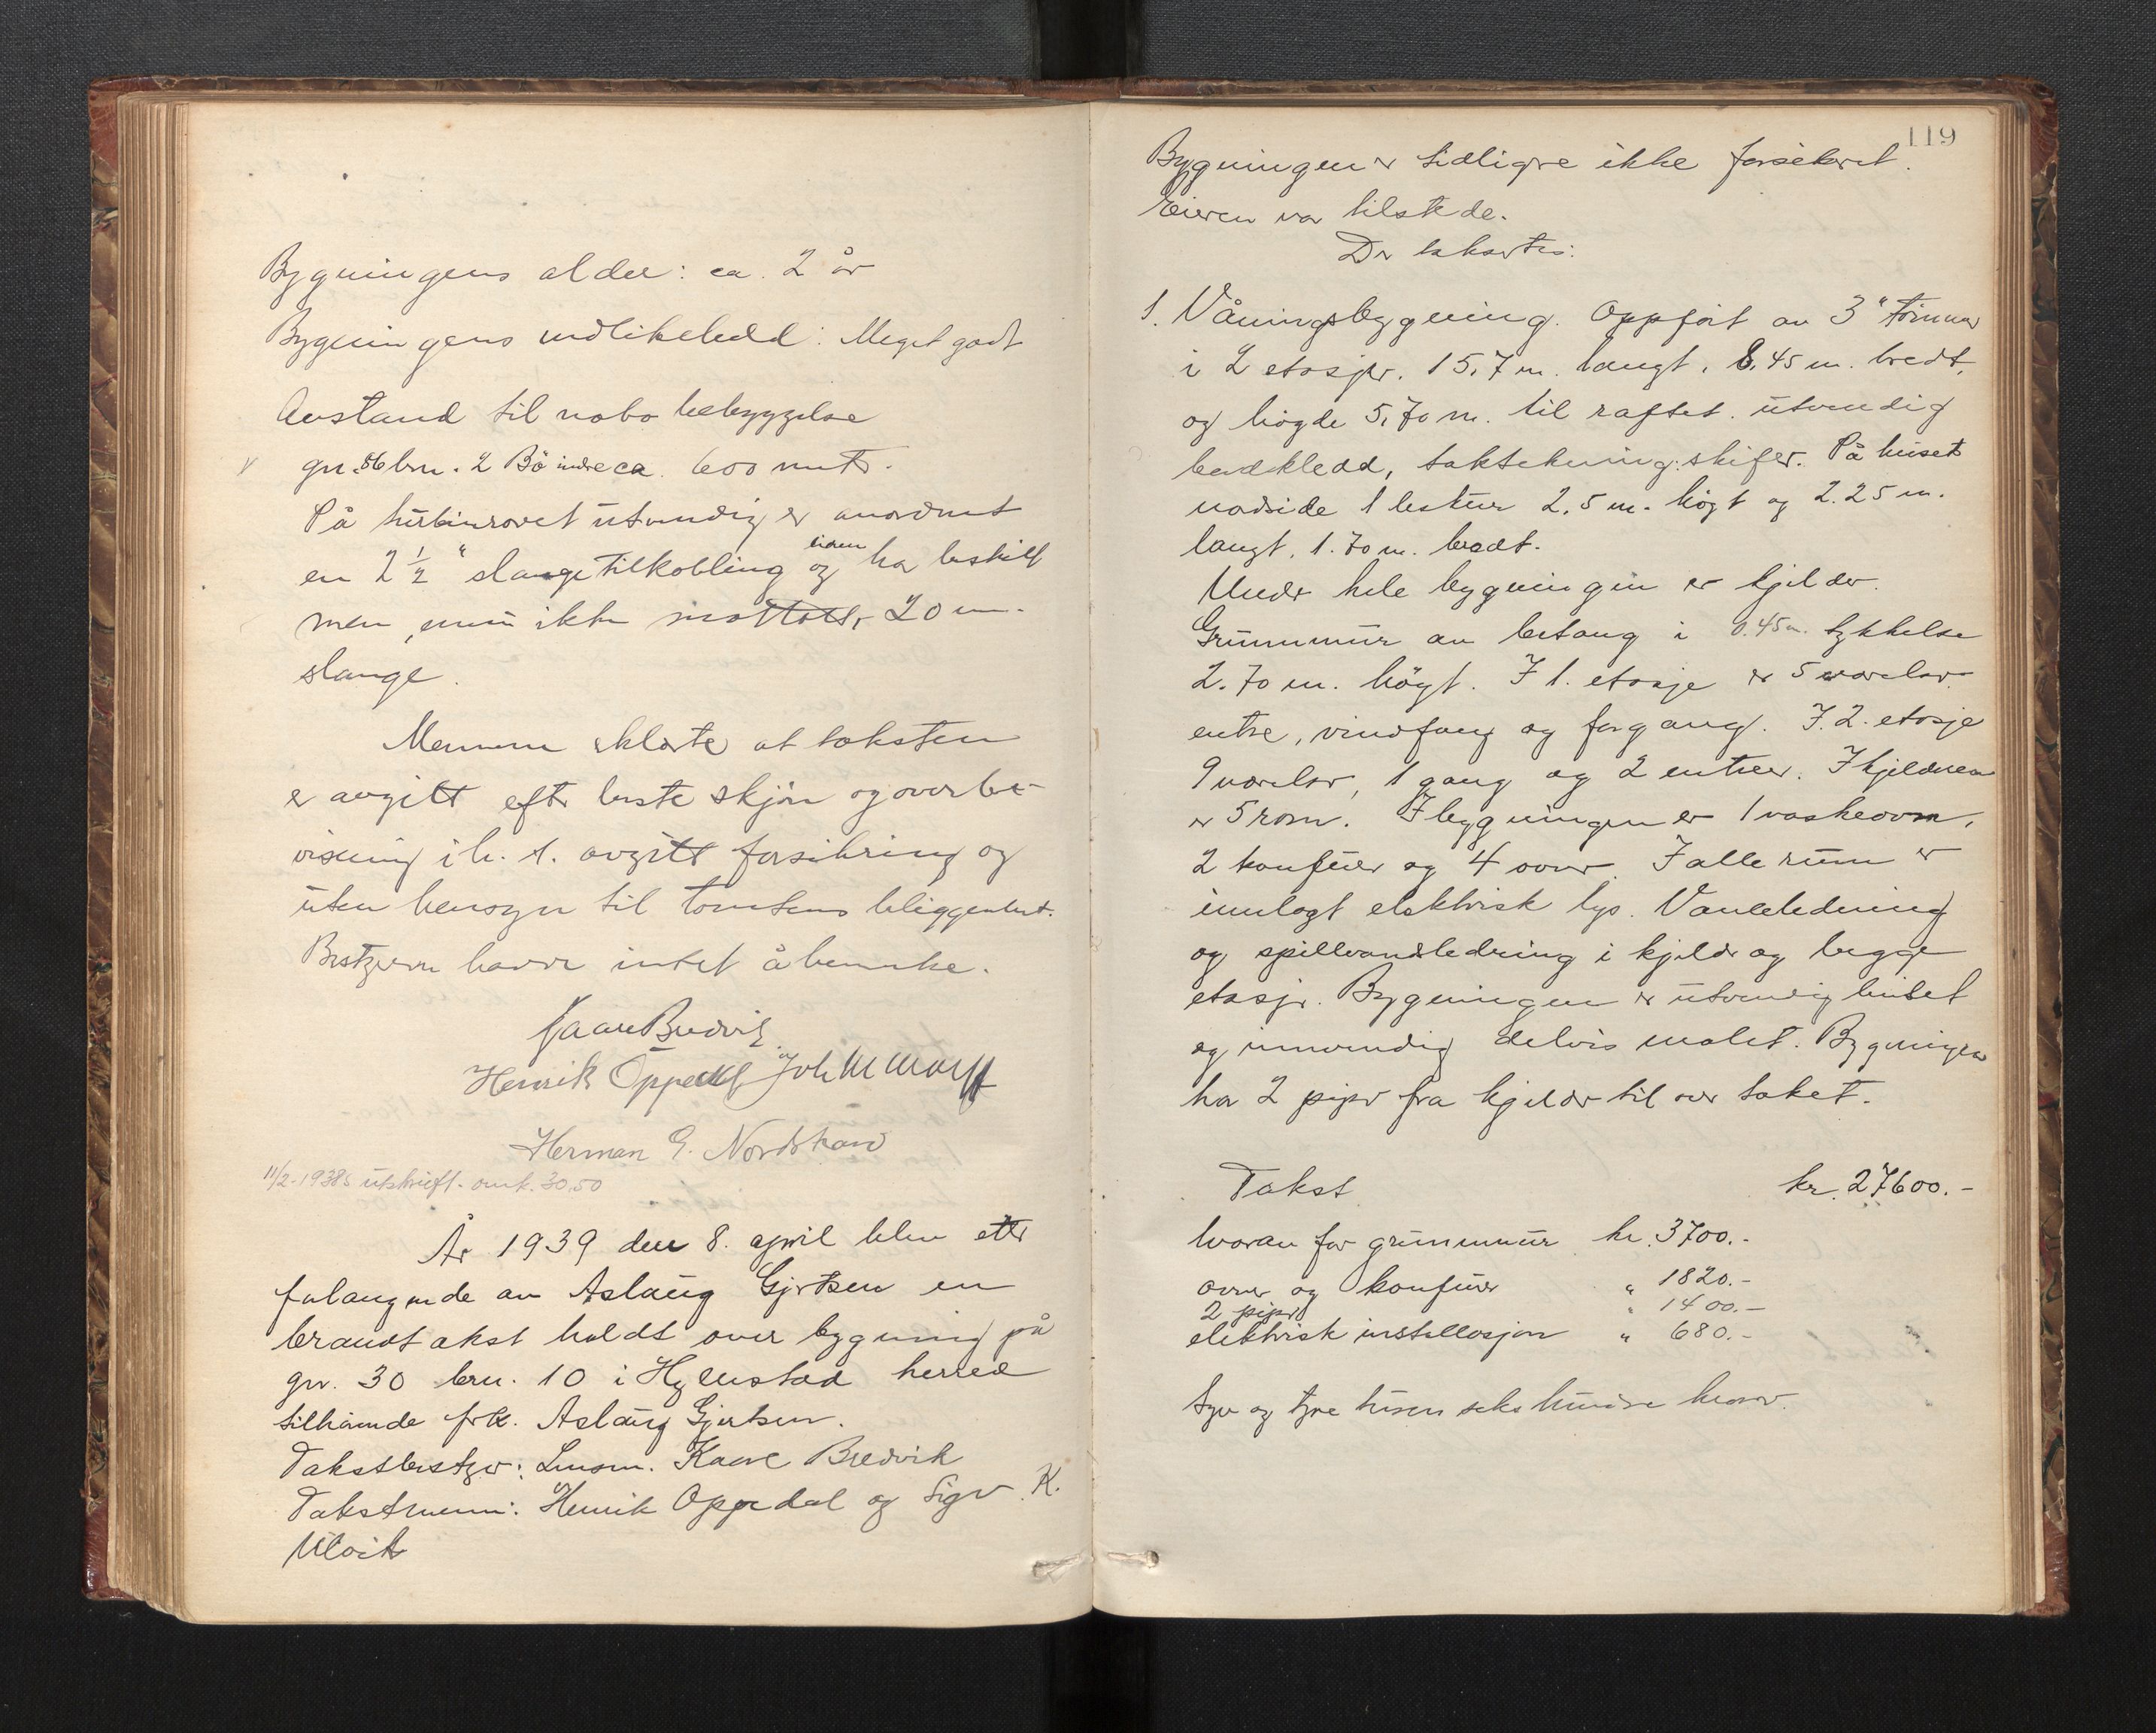 Bygningens alder: ca. 2 år
Bygningens vedlikehold: Meget godt
Avstand til nabo bebyggelse
gn. 86 brn. 2 Bö indre ca. 600 meter.
På turbinröret utvendig er anordnet
en 2 1/2" slangetilkobling og eieren har bestilt
men, ennu ikke mottatt, 20 m.
slange.
Mennene erklærte at taksten
er avgitt efter beste skjön og overbe-
visning i h. t. avgitt forsikring og
uten hensyn til tomtens beliggenhet.
Bestyreren havde intet å bemerke.
Kaare Bredvik
Henrik Oppedal og Joh M Wolff
Herman G. Nordstrand
11/2-1938 utskrift. omk. 30,50
År 1939 den 8. april blev efter
forlangende av Aslaug Gjertsen en
branntakst holdt over bygning på
gnr. 30 brn. 10 i Hyllestad herred
tilhörende frk. Aslaug Gjertsen.
Takstbestyrer: Lensm. Kaare Bredvik
Takstmenn: Henrik Oppedal og Sigv. K.
119
Bygningen er tidligere ikke forsikret.
Eieren var tilstede.
Der takstertes:
1. Våningsbygning. Oppfört av 3" tömmer
i 2 etasjer. 15,7 m. langt, 8,45 m. bredt,
og högde 5,70 m. til raftet. utvendig
bordkledd, taktekning: skifer. På husets
nordside 1 bislag 2.5 m. högt og 2.25 m.
langt, 1.70 m. bredt.
Under hele bygningen er kjelder.
Grunnmur av betong i 0.45 m. tykkelse
2.70 m. högt. I 1. etasje er 5 værelser
entre, vindfang og forgang. I 2. etasje
9 værelser, 1 gang og 2 entreer. I kjelderen
er 5 rom. I bygningen er 1 vaskeovn,
2 komfurer og 4 ovner. I alle rum er
innlagt elektrisk lys. Vannledning
og spillvandsledning i kjelder og begge
etasjer. Bygningen er utvendig beiset
og innvendig delvis malet. Bygningen
har 2 piper fra kjelder til over taket.
Takst kr. 27600.-
hvorav for grunnmur kr. 3700.-
ovner og komfurer " 1820.-
2 piper " 1400.-
elektrisk installasjon " 680.-
Syv og tyve tusen seks hundre kroner.